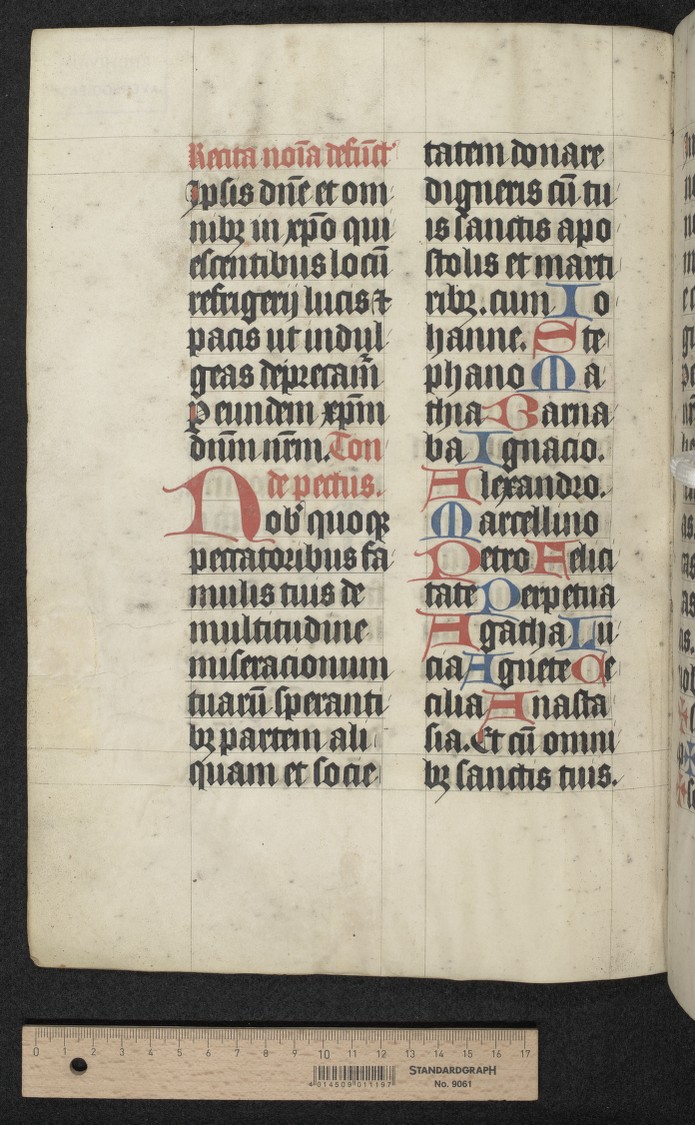 Recita noīa defūct
Ipsis dn̄e et om
nibꝫ in xp̄o qui
escentibus locū
refrigerij lucis ⁊
pacis ut indul
geas deprecam̄
ꝑ eundem xp̄m
dn̄m nr̄m. Ton
de pectus.
Nobˢ quoqꝫ
peccatoribus fa
mulis tuis de
multitudine
miseracionum
tuarū speranti
bꝫ partem ali
quam et socie
tatem donare
digneris cū tu
is sanctis apo
stolis et marti
ribꝫ. cum Io
hanne. Ste
phano Ma
thia Barna
ba Ignacio.
Alexandro.
Marcellino
Petro Felici
tate Perpetua
Agatha Lu
cia Agnete Ce
cilia Anasta
sia. Et cū omni
bꝫ sanctis tuis.
0 1 2 3 4 5 6 7 8 9 10 11 12 13 14 15 16 17
4 014509 011197
STANDARDGRAPH
No. 9061